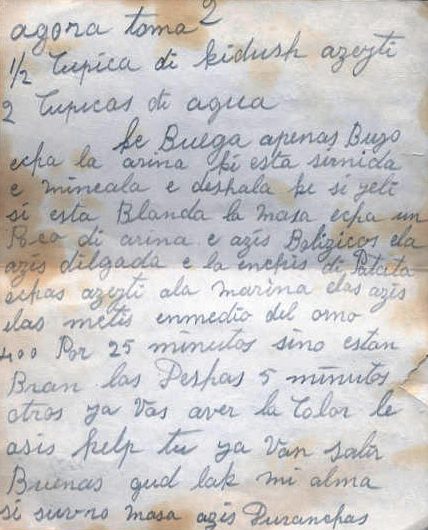 agora toma 2
1/2 Cupica di kidush azeyti
2 Cupicas di agua
ke Buega apenas Buzo
echa la arina ki esta sirnida
e mineala e deshala ke si yeli
si esta Blanda la masa echa un
Poco di arina e azis Bolizicos ela
azis dilgada e la inchis di Patata
echas azeyti ala marina elas azis
elas metis enmedio del orno
400 Por 25 minutos sino estan
Bran las Deshas 5 minutos
otros ya Vas aver la Color le
asis help tu ya Van salir
Buenas gud lak mi alma
si masa azis